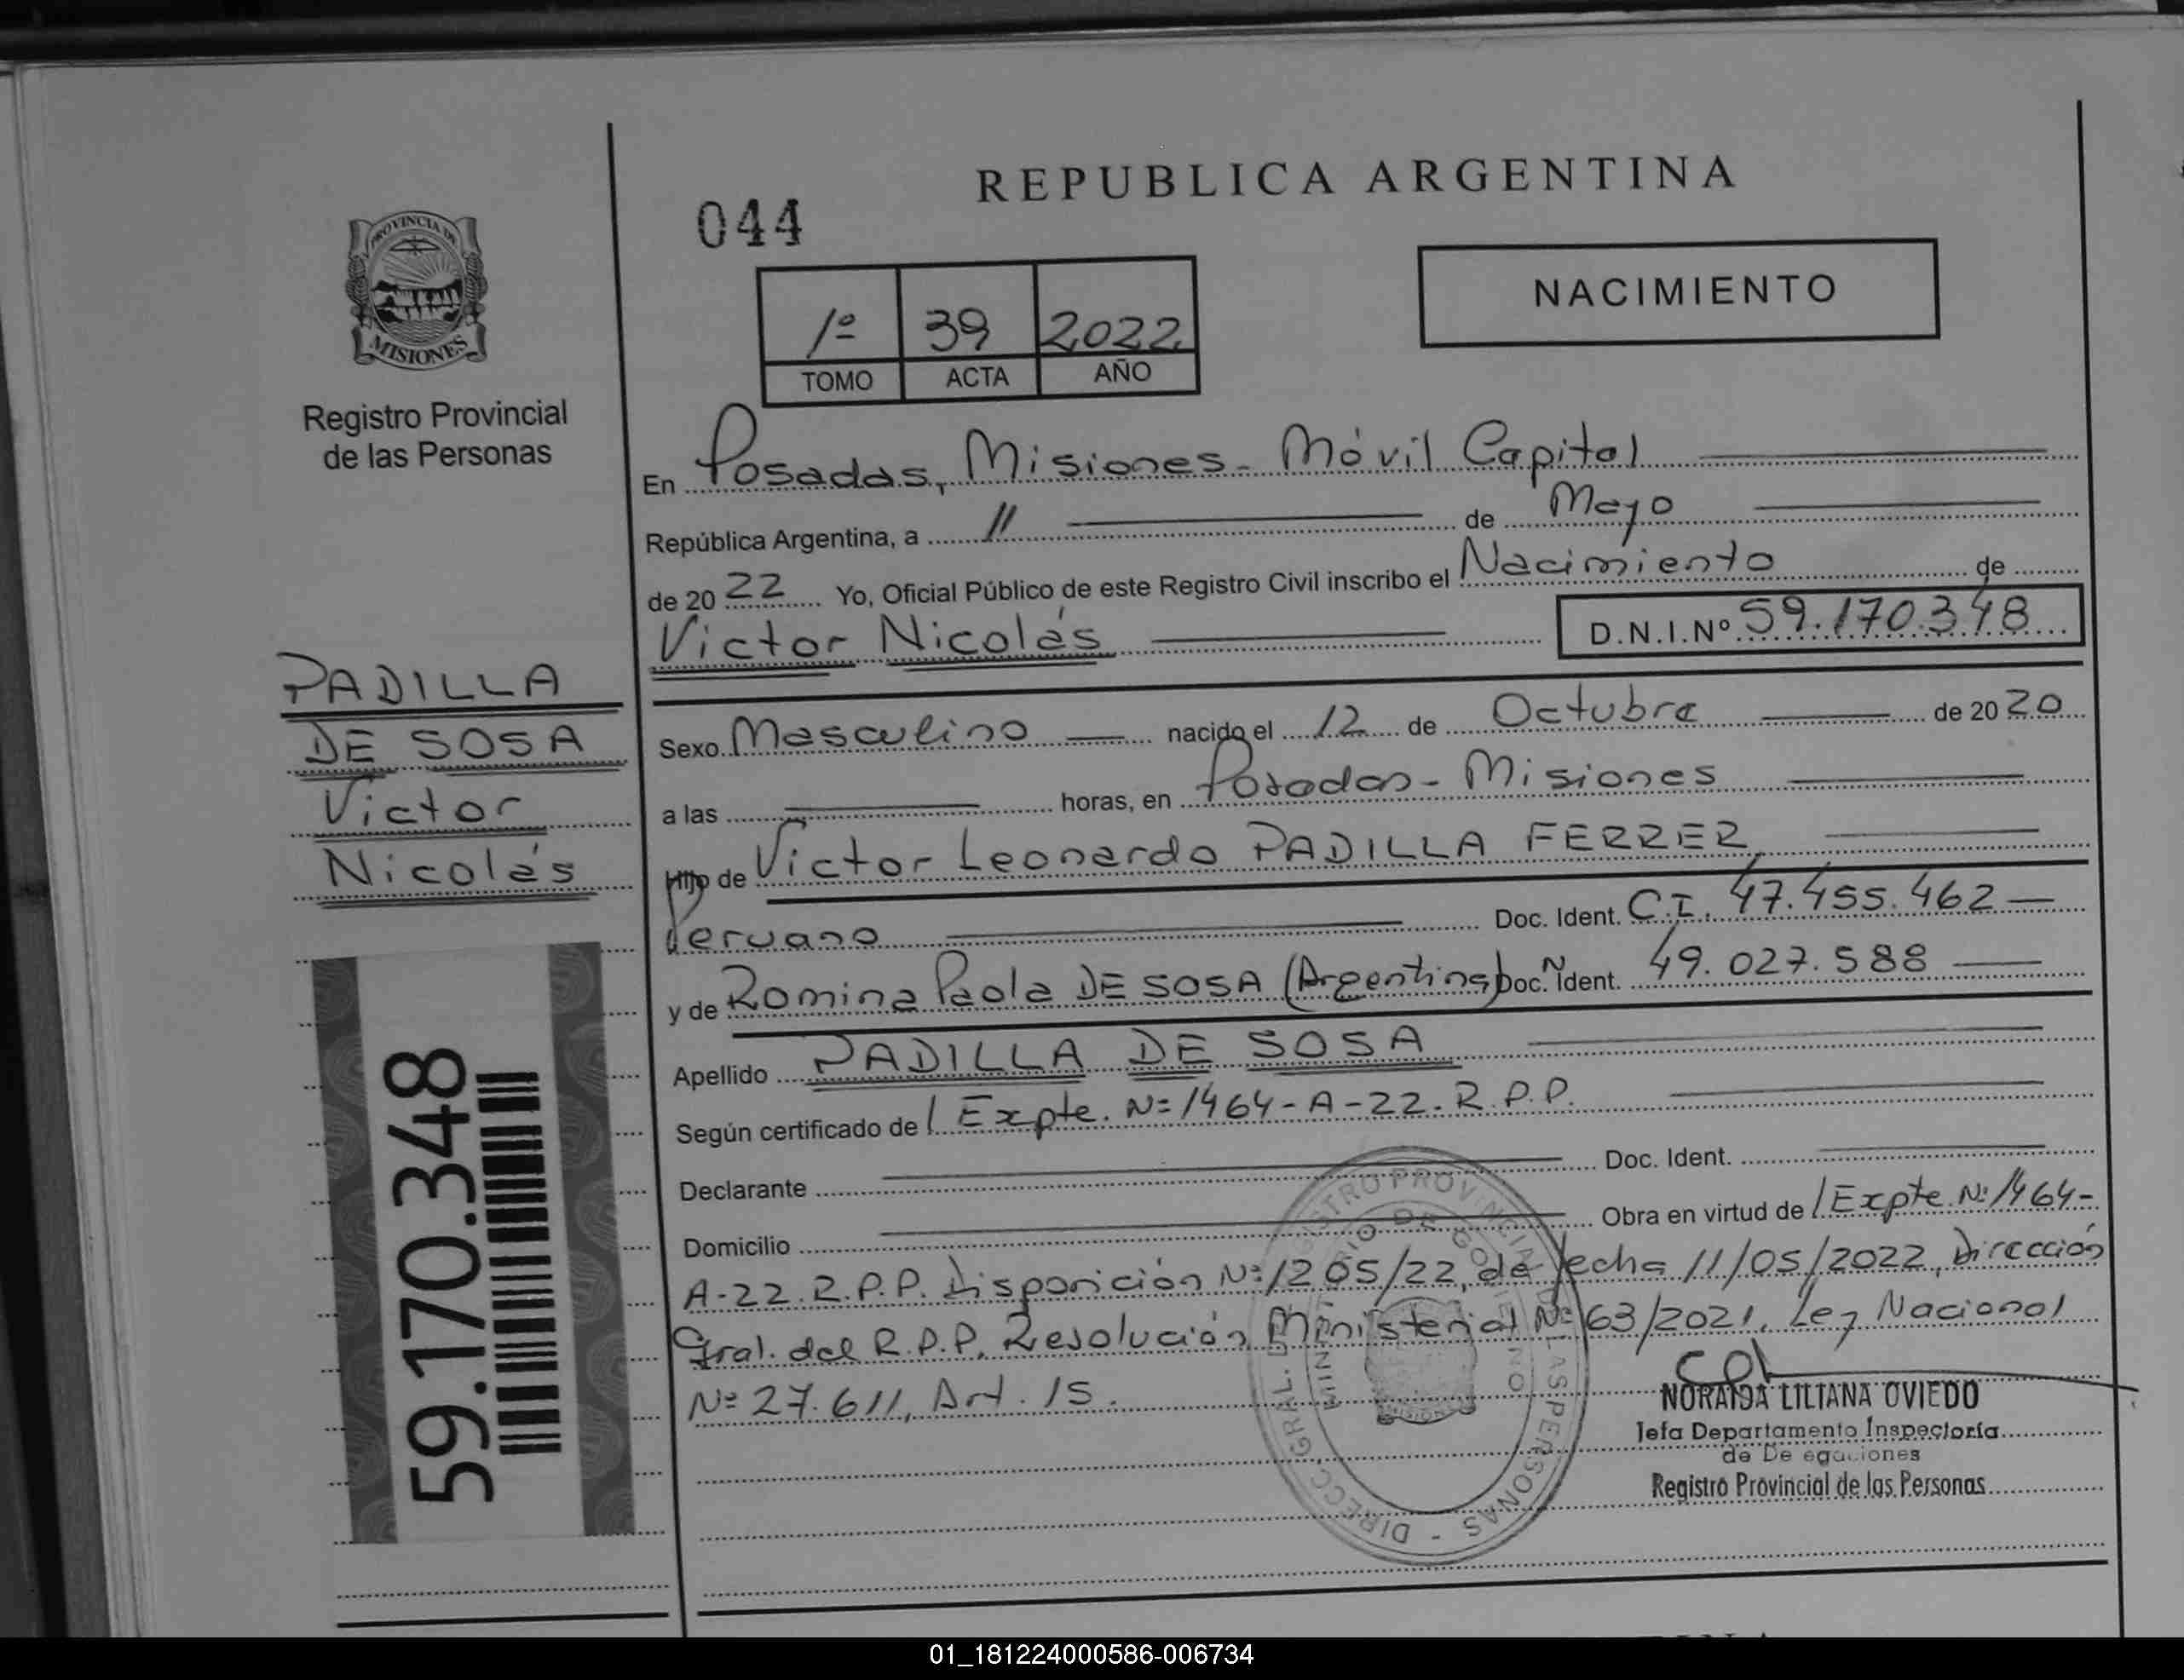 REPUBLICA ARGENTINA
044
NACIMIENTO
1º 39 2022
TOMO ACTA AÑO
PROVINCIA DE
MISIONES
Registro Provincial
de las Personas
PADILLA
DE SOSA
Victor
Nicolás
59.170.348
En Posadas, Misiones - Móvil Capital
República Argentina, a 11 de Mayo
de 2022 Yo, Oficial Público de este Registro Civil inscribo el Nacimiento de
Victor Nicolás D.N.I.Nº 59.170.348
Sexo Masculino nacido el 12 de Octubre de 2020
a las horas, en Posadas - Misiones
Hijo de Victor Leonardo PADILLA FERRER
Peruano Doc. Ident. C.I. 47.455.462
y de Romina Paola DE SOSA (Argentina) Doc. Ident. 49.027.588
Apellido PADILLA DE SOSA
Según certificado de Expte. Nº 1464-A-22-R.P.P.
Declarante Doc. Ident.
Domicilio Obra en virtud de Expte. Nº 1464-
A-22.R.P.P. Disposición Nº 1205/22, de fecha 11/05/2022, Dirección
Gral. del R.P.P. Resolución Ministerial Nº 63/2021. Ley Nacional
Nº 27.611, Art. 15.
NORAIDA LILIANA OVIEDO
Jefa Departamento Inspectoría
de De egaciones
Registro Provincial de las Personas
DIRECC. GRAL. DEL REGISTRO PROVINCIAL DE LAS PERSONAS -
MINISTERIO DE GOBIERNO
MISIONES
01_181224000586-006734